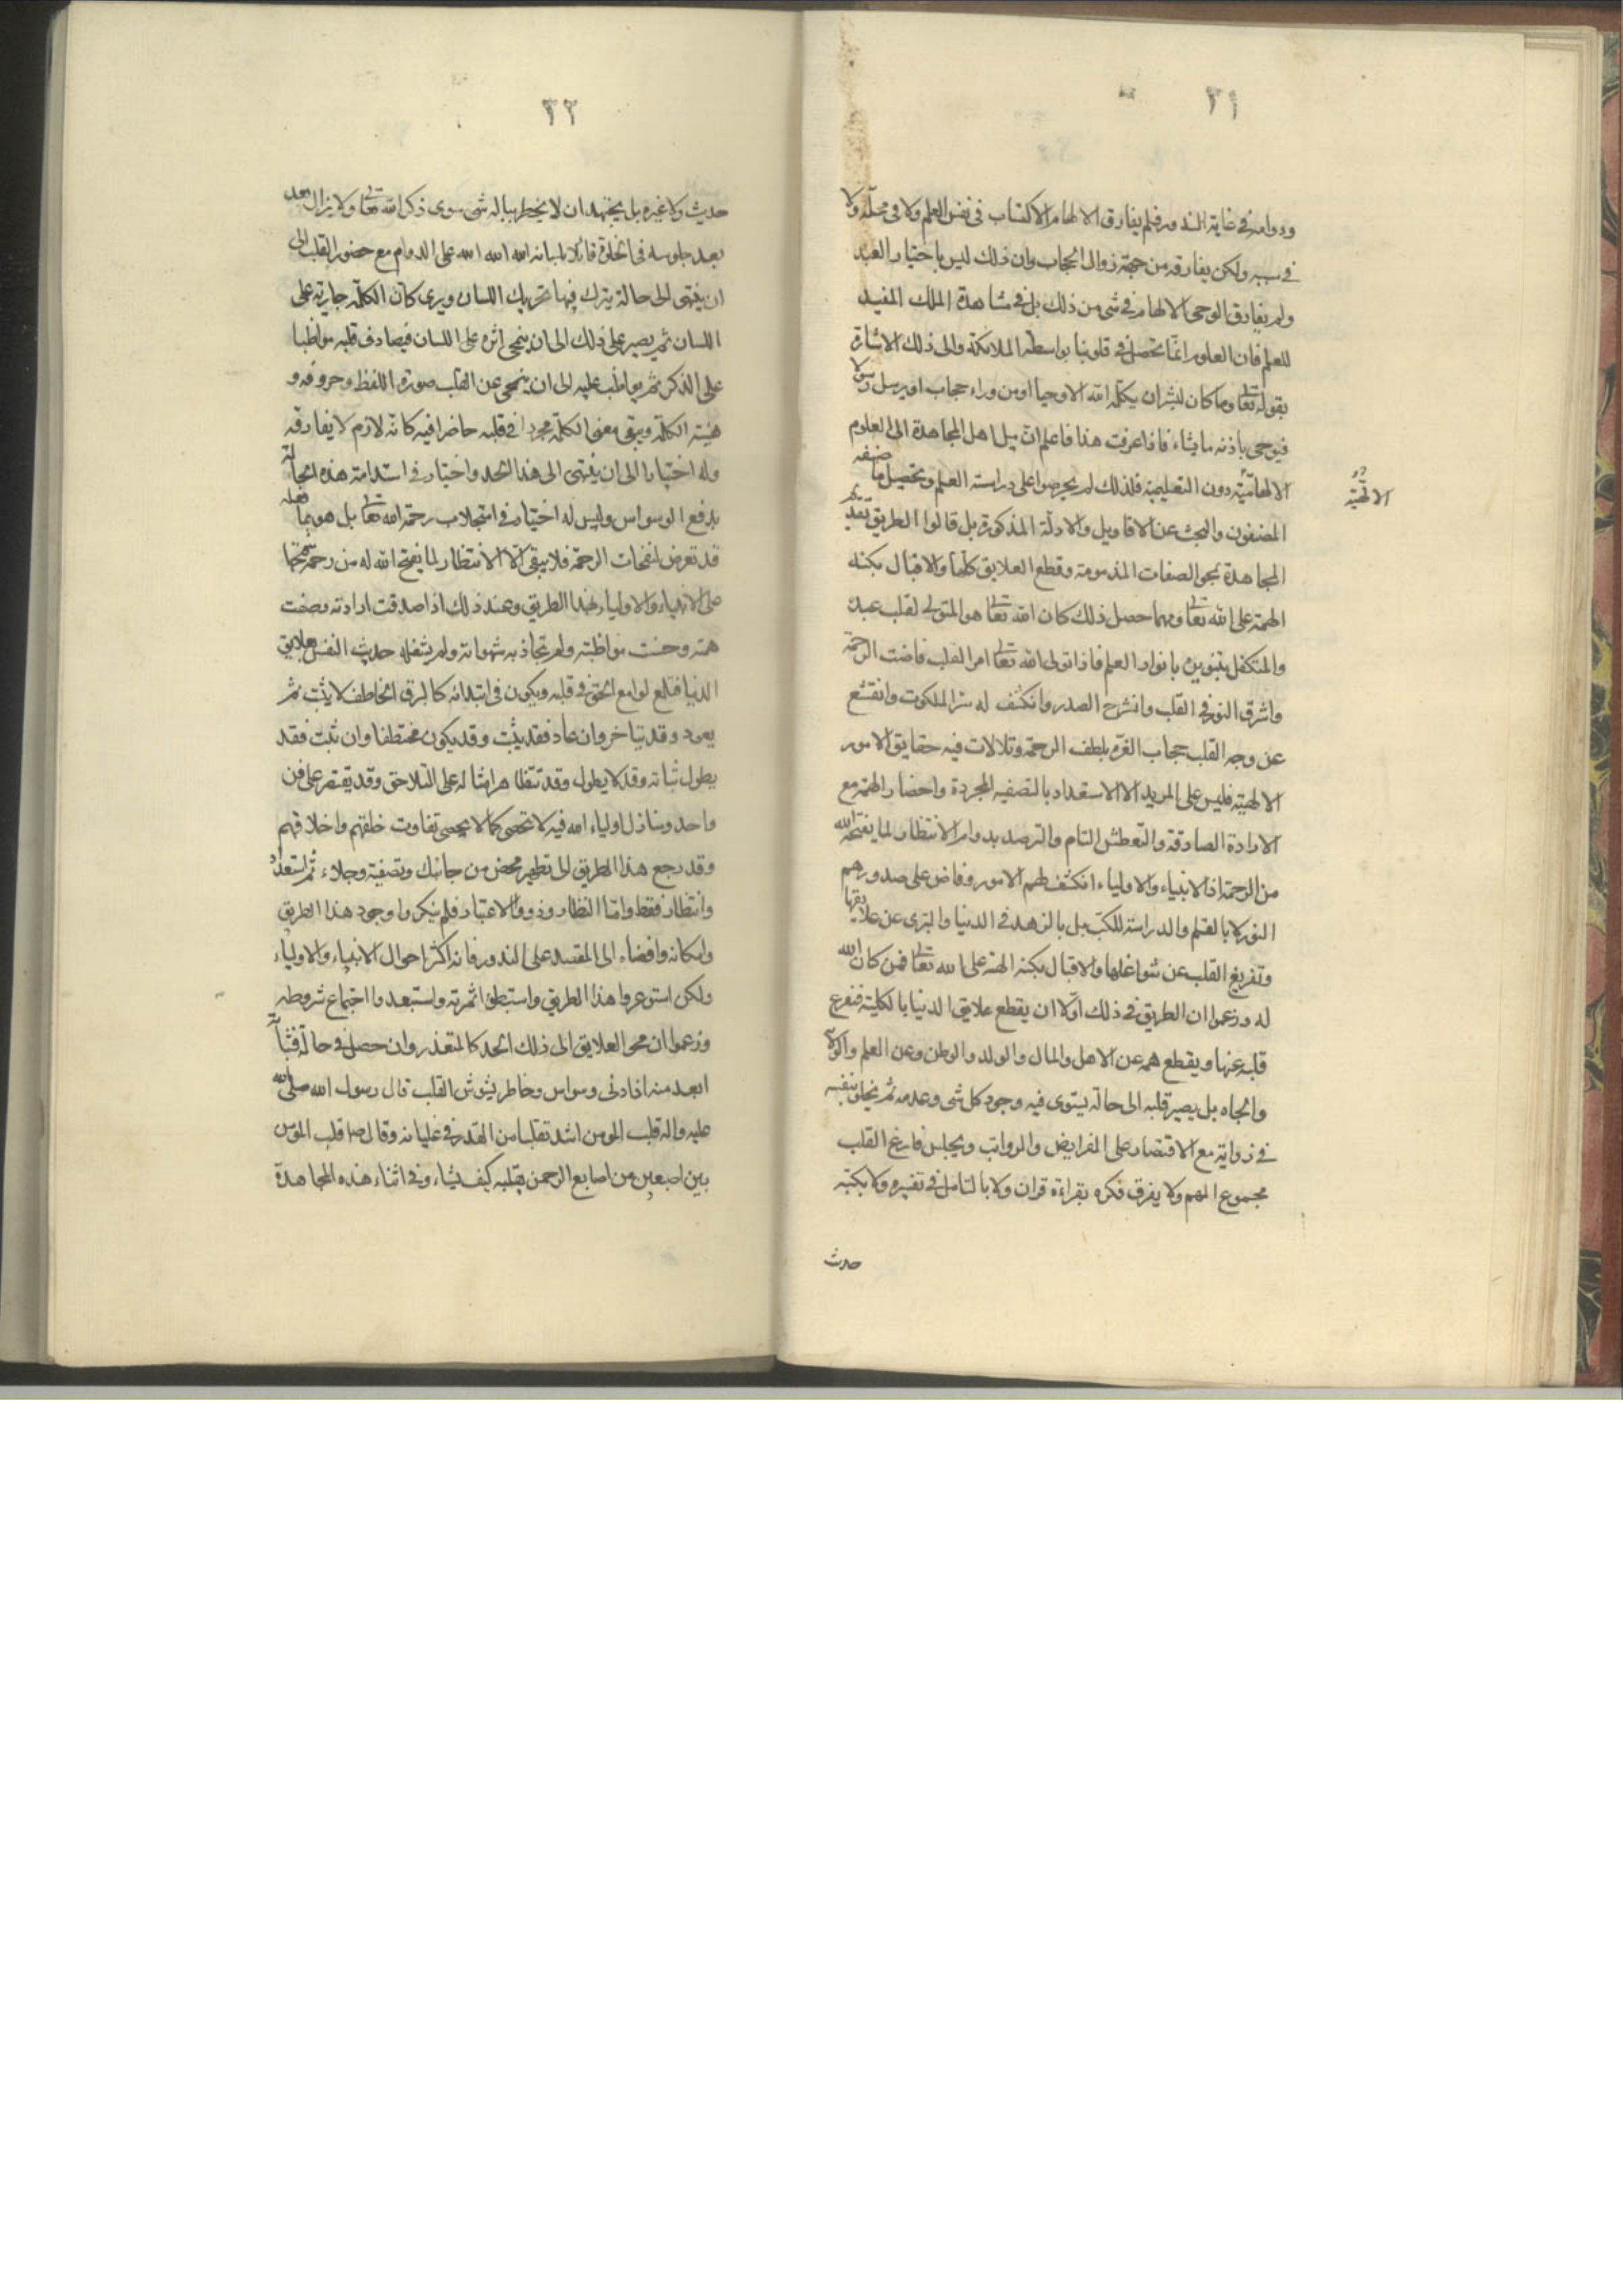 ٣١
ودوامه في غاية الندور فلم يفارق الالهام الاكتساب في نفس العلم ولا في محله ولا
في سببه ولكن يفارقه من جهة زوال الحجاب وان ذلك ليس باختيار العبد
ولم يفارق الوحي الالهام في شئ من ذلك بل في مشاهدة الملك المفيد
للعلم فان العلوم انما تحصل في قلوبنا بواسطة الملائكة والى ذلك الاشارة
بقوله تعالى وما كان لبشر ان يكلمه الله الا وحيا او من وراء حجاب او يرسل رسولا
فيوحي باذنه ما يشاء فاذا عرفت هذا فاعلم ان ميل اهل المجاهدة الى العلوم
الالهامية دون التعليمية فلذلك لم يحرصوا على دراسة العلم وتحصيل ما صنفه
الالهية
المصنفون والبحث عن الاقاويل والادلة المذكورة بل قالوا الطريق تقديم
المجاهدة بمحو الصفات المذمومة وقطع العلايق كلها والاقبال بكنه
الهمة على الله تعالى ومهما حصل ذلك كان الله تعالى هو المتولى لقلب عبده
والمتكفل بتنويره بانوار العلم فاذا تولى الله تعالى امر القلب فاضت الرحمة
واشرق النور في القلب وانشرح الصدر وانكشف له سر الملكوت وانقشع
عن وجه القلب حجاب الغرة بلطف الرحمة وتلالات فيه حقايق الامور
الالهية فليس على المريد الا الاستعداد بالتصفيه المجردة واحضار الهمة مع
الارادة الصادقة والتعطش التام والترصد بدوام الانتظار لما يفتحه الله
من الرحمة اذ الانبياء والاولياء انكشف لهم الامور وفاض على صدورهم
النور لا بالتعلم والدراسة للكتب بل بالزهد في الدنيا والتبرى عن علايقها
وتفريغ القلب عن شواغلها والاقبال بكنه الهمة على الله تعالى فمن كان لله
له وزعموا ان الطريق في ذلك اولا ان يقطع علايق الدنيا بالكلية فيفرغ
قلبه عنها ويقطع همه عن الاهل والمال والولد والوطن وعن العلم والولاية
والجاه بل يصير قلبه الى حالة يستوى فيه وجود كل شئ وعدمه ثم يخلو بنفسه
في زواية مع الاقتصار على الفرايض والرواتب ويجلس فارغ القلب
مجموع الهم ولا يفرق فكره بقراءة قران ولا بالتامل في تفسيره ولا بكتبه
حديث
٣٢
حديث ولا غيره بل يجتهد ان لا يخطر بباله شئ سوى ذكر الله تعالى ولا يزال بعد
بعد جلوسه في الخلوة قائلا بلسانه الله الله الله على الدوام مع حضور القلب الى
ان ينتهى الى حالة يترك فيها تحريك اللسان ويرى كان الكلمة جارية على
اللسان ثم يصبر على ذلك الى ان ينمحى اثره على اللسان فيصادف قلبه مواظبا
على الذكر ثم يواظب عليه الى ان ينمحى عن القلب صورة اللفظ وحروفه و
هيئة الكلمة ويبقى معنى الكلمة مجردا في قلبه حاضرا فيه كانه لازم لا يفارقه
وله اختيار الى ان ينتهى الى هذا الحد واختيار في استدامة هذه الحالة
بدفع الوسواس وليس له اختيار في استجلاب رحمة الله تعالى بل هو بما فعله
قد تعرض لنفحات الرحمة فلا يبقى الا الانتظار لما يفتح الله له من رحمته كما فتحها
على الانبياء والاولياء بهذا الطريق وعند ذلك اذا صدقت ارادته وصفت
همته وحسنت مواظبته ولم تجاذبه شهواته ولم يشغله حديث النفس بعلايق
الدنيا فتلمع لوامع الحق في قلبه ويكون في ابتدائه كالبرق الخاطف لا يثبت ثم
يعود وقد يتاخر وان عاد فقد يثبت وقد يكون مختطفا وان ثبت فقد
يطول ثباته وقد لا يطول وقد تتظاهر امثاله على التلاحق وقد يقتصر على فن
واحد ومنازل اولياء الله فيه لا تحصى كما لا يحصى تفاوت خلقهم واخلاقهم
وقد رجع هذا الطريق الى تطهير محض من جانبك وتصفية وجلاء ثم استعداد
وانتظار فقط واما النظار وذوو الاعتبار فلم ينكروا وجود هذا الطريق
وامكانه وافضاءه الى المقصد على الندور فانه اكثر احوال الانبياء والاولياء
ولكن استوعروا هذا الطريق واستبطؤا ثمرته واستبعدوا اجتماع شروطه
وزعموا ان محو العلايق الى ذلك الحد كالمتعذر وان حصل في حالة فثباته
ابعد منه اذ ادنى وسواس وخاطر يشوش القلب قال رسول الله صلى الله
عليه واله قلب المومن اشد تقلبا من القدر في غليانه وقال ص قلب المومن
بين اصبعين من اصابع الرحمن يقلبه كيف يشاء وفي اثناء هذه المجاهدة